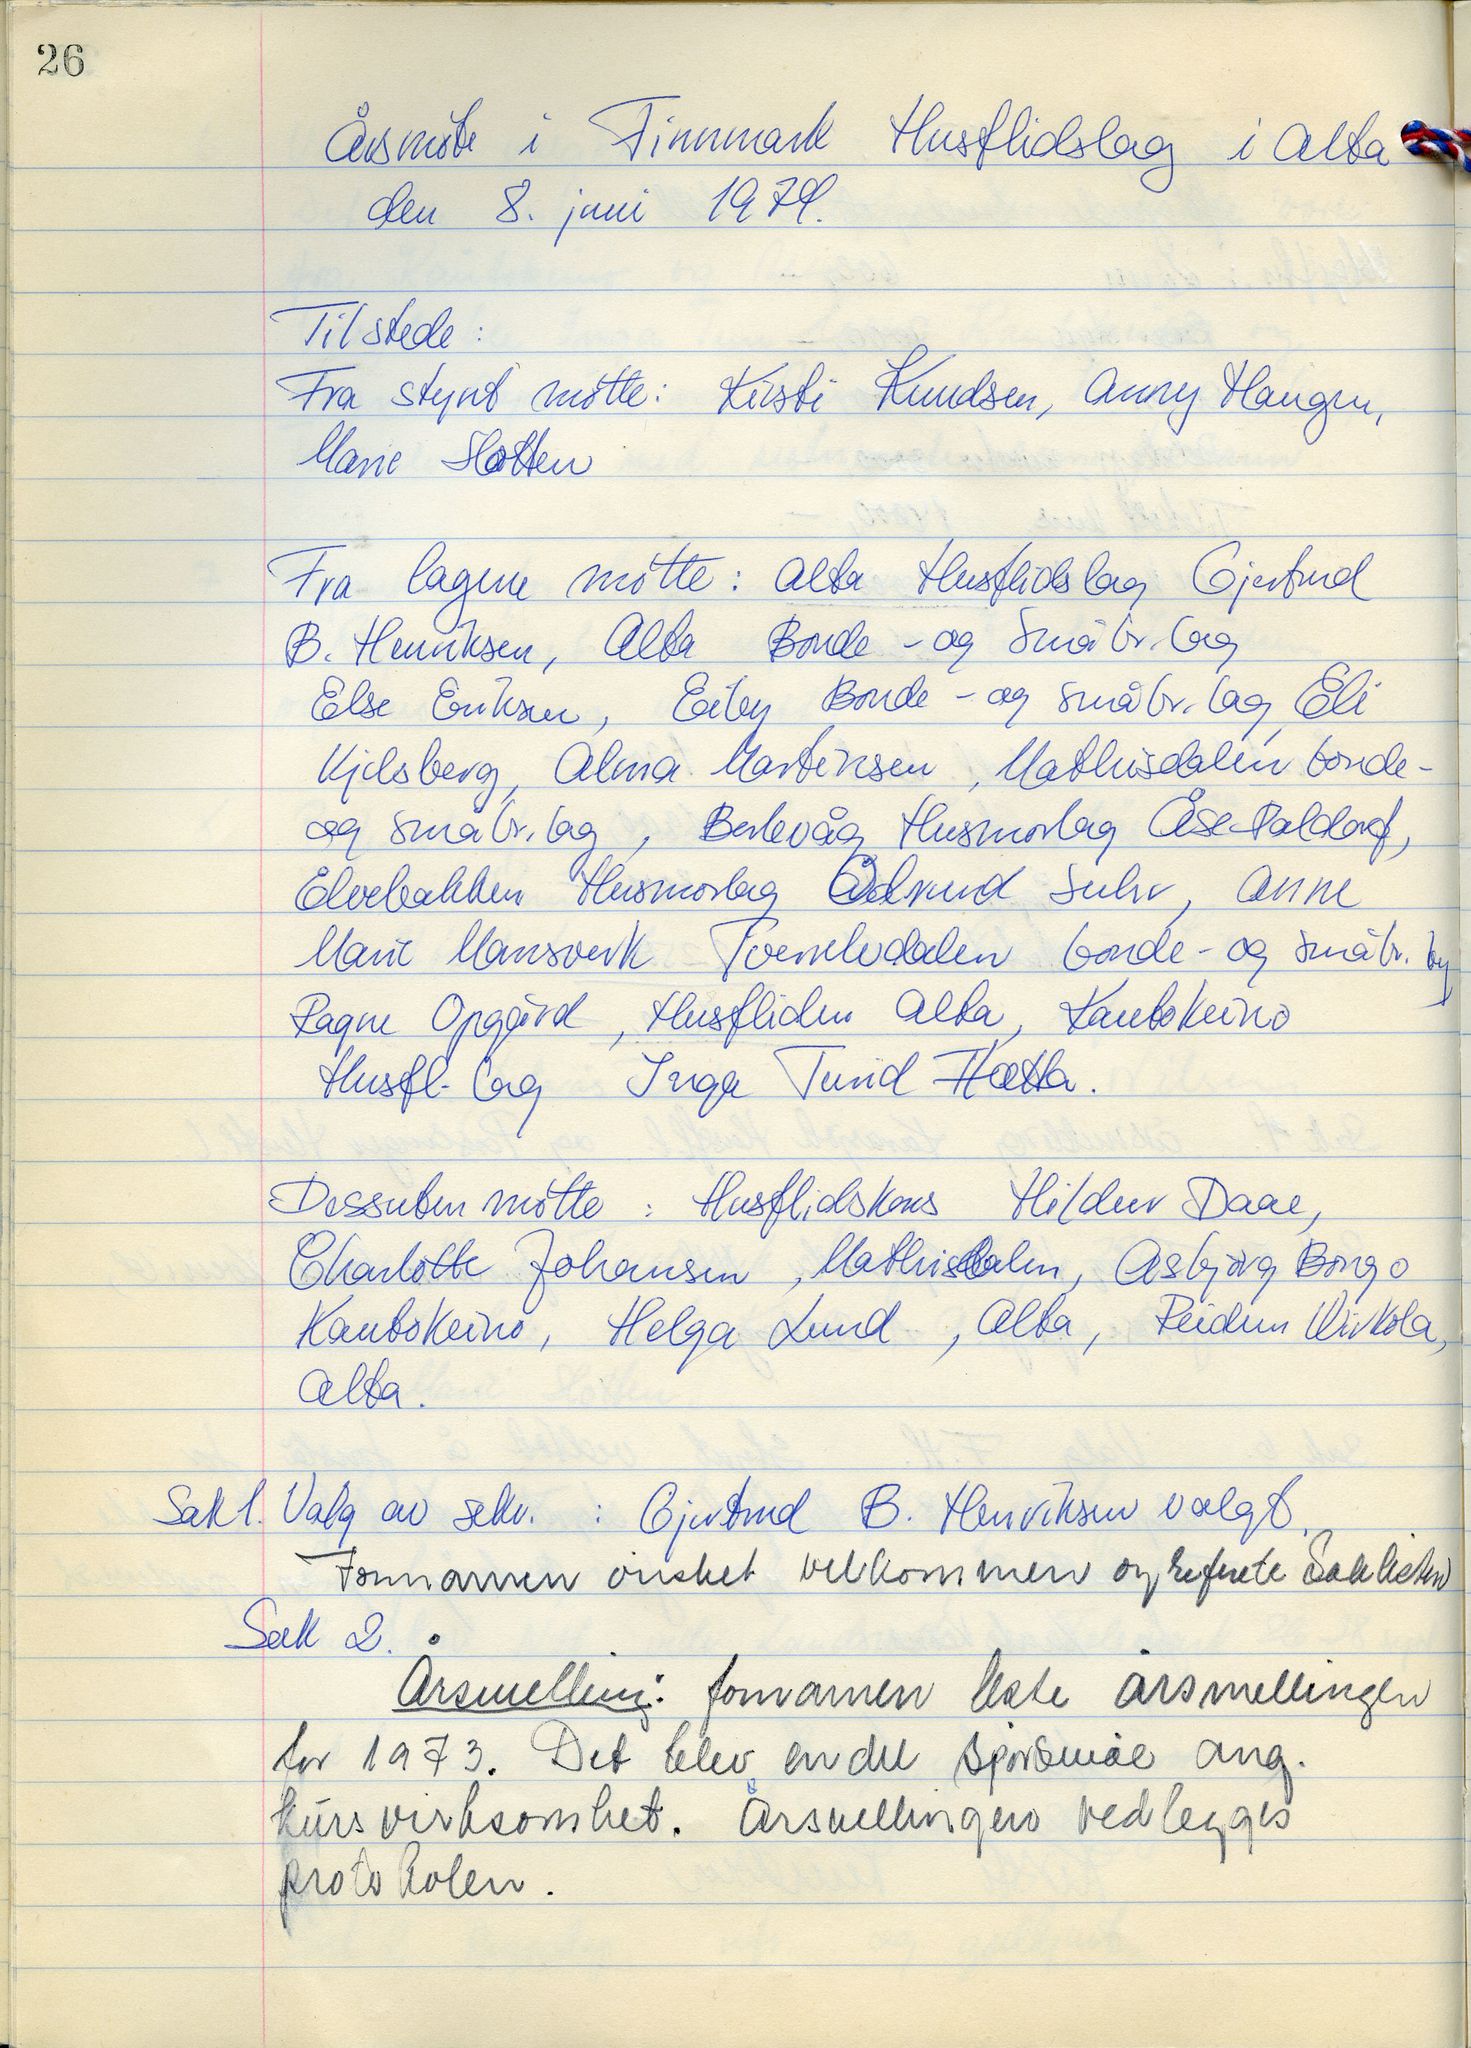 26
Årsmöte i Finnmark Husflidslag i Alta
den 8. juni 1974.
Tilstede:
Fra styret mötte: Kirsti Knudsen, Anny Haugen,
Marie Slotten
Fra lagene mötte: Alta Husflidslag Gjertrud
B. Henriksen, Alta Bonde- og Småbr. lag
Else Eriksen, Eiby Bonde- og småbr. lag, Eli
Kjelsberg, Alma Martinsen, Mathisdalen bonde-
og småbr. lag, Berlevåg Husmorlag Åse
Elvebakken Husmorlag Suhr, Anne
Marie Mansverk Tverrelvdalen bonde- og småbr. lag
Ragne Opgård, Husfliden Alta, Kautokeino
Husfl. lag Inga Turid Hætta.
Dessuten mötte: Husflidskons Hildur Daae,
Charlotte Johansen, Mathisdalen, Asbjørg Bongo
Kautokeino, Helga Lund, Alta, Reidun Wirkola,
Alta.
Sak 1. Valg av sekr. : Gjertrud B. Henriksen valgt.
Formannen ønsket velkommen og referete Saklisten
Sak 2.
Årsmelling: formannen leste årsmellingen
for 1973. Det blev en del spörsmål ang.
kursvirksomhet. Årsmellingen vedlegges
protokolen.